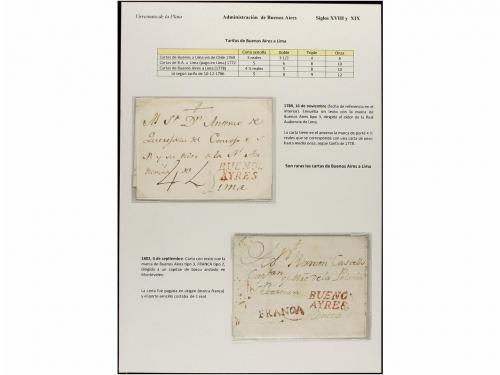 Virreinato de la Plata
Administración de Buenos Aires
Siglos XVIII y XIX
Tarifas de Buenos Aires a Lima
Carta sencilla Doble Triple Onza
Cartas de Buenos a Lima vía de Chile 1769 3 reales 3 1/2 4 6
Cartas de B.A. a Lima (pago en Lima) 1772 5 6 8 10
Cartas de Buenos Aires (1778) 4 ½ reales 5 8 10
Id según tarifa de 10-12-1796 5 8 9 12
1789, 16 de noviembre (fecha de referencia en el
interior). Envuelta sin texto con la marca de
Buenos Aires tipo 3, dirigida al oidor de la Real
Audiencia de Lima.
La carta tiene en el anverso la marca de porte 4 ½
reales que se corresponde con una carta de peso
hasta media onza, según tarifa de 1778.
Son raras las cartas de Buenos Aires a Lima
Al Sr. Dn. Antonio de
del Consejo de S.
de la Rl. Au
BUENO.
AYRES
Lima
1802, 6 de septiembre. Carta con texto con la
marca de Buenos Aires tipo 3, FRANCA tipo 2,
dirigida a un capitán de barco anclado en
Montevideo.
La carta fue pagada en origen (marca franca)
y el porte sencillo costaba de 1 real.
Ramon
de la
BUENO
AYRES
FRANCA